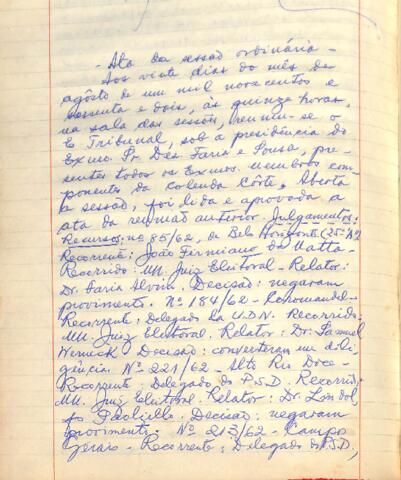 - Ata da sessão ordinária -
Aos vinte dias do mês de
agôsto de um mil novecentos e
sessenta e dois, às quinze horas,
na sala das sessões, reuniu-se o
E. Tribunal, sob a presidência do
Exmo. Sr. Des. Faria e Sousa, pre-
sentes todos os Exmos. membros com-
ponentes da Colenda Côrte. Aberta
a sessão, foi lida e aprovada a
ata da reunião anterior. Julgamentos:
Recursos: nº 85/62, de Belo Horizonte
Recorrente: João Firmiano da Matta -
Recorrido: MM. Juiz Eleitoral - Relator:
Dr. Faria Alvim. Decisão: negaram
provimento. Nº 184/62 - Coromandel -
Recorrente: Delegado da U.D.N. Recorrido:
MM. Juiz Eleitoral. Relator: Dr. Samuel
Werneck Decisão: converteram em dili-
gência. Nº 221/62 - Alto Rio Doce -
Recorrente: Delegado do P.S.D. Recorrido:
MM. Juiz Eleitoral. Relator: Dr. Lindol-
fo Paoliello. Decisão: negaram
provimento. Nº 213/62 - Campos
Gerais - Recorrente: Delegado do P.S.D.,